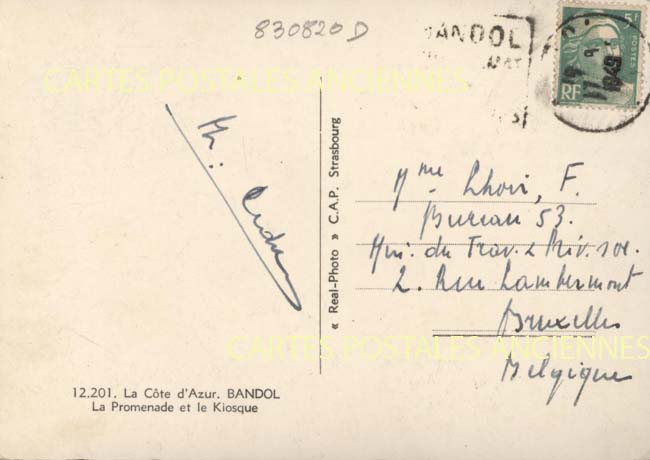 830820 D
BANDOL
5F
POSTES
RF
19 9
1949
CARTES POSTALES ANCIENNES
Mme Lhoir, F.
Bureau 53.
Min. du Trav. & Prév. soc.
2. Rue Lambermont
Bruxelles
Belgique
« Real-Photo » C.A.P. Strasbourg
CARTES POSTALES ANCIENNES
12.201. La Côte d'Azur. BANDOL
La Promenade et le Kiosque